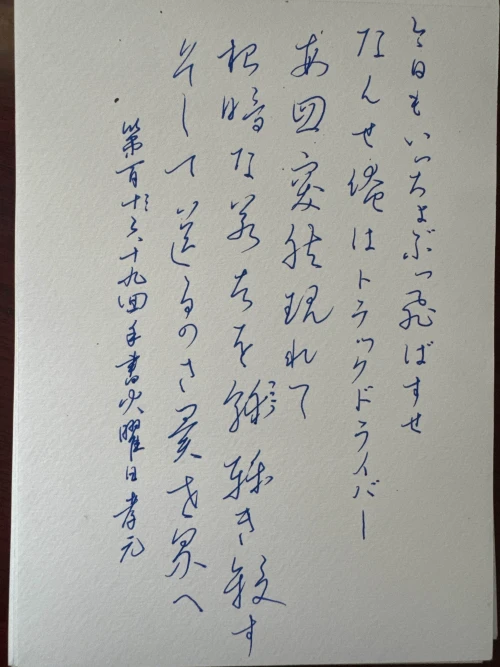 今日もいっちょぶっ飛ばすせ
なんせ俺はトラックドライバー
毎回突然現れて
根暗な若者を轢き殺す
そして送るのさ異世界へ
第百十六十九回手書火曜日孝元